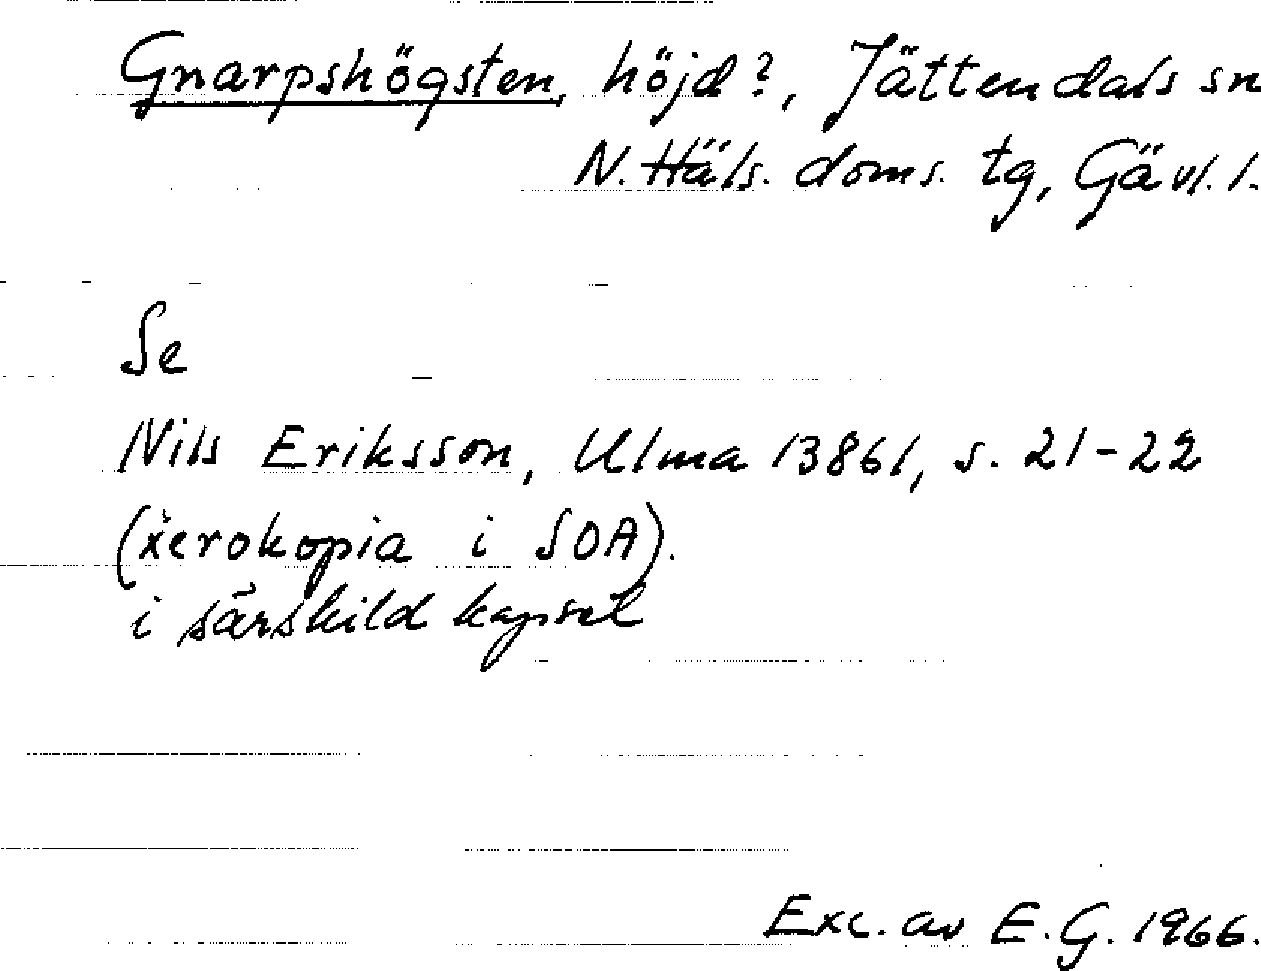 Gnarpshögsten, höjd?, Jättendals sn
N. Häls. doms. tg, Gävl. l.
Se
Nils Eriksson, Ulma 13861, s. 21-22
(xerokopia i SOA).
i särskild kapsel
Exc. av E.G. 1966.